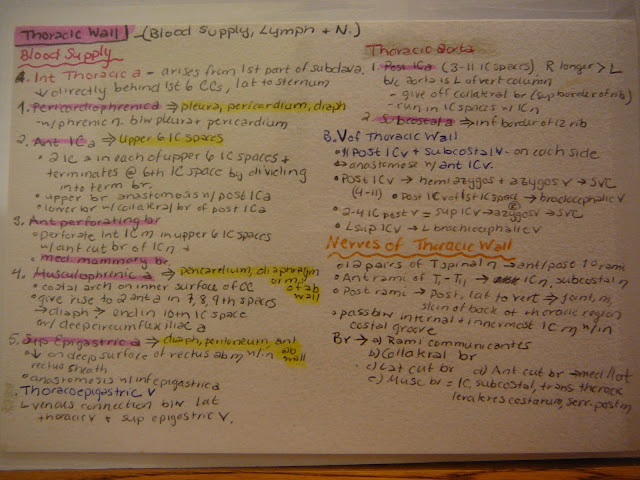 Thoracic Wall - (Blood Supply, Lymph + N.)
Blood Supply
A. Int Thoracic a - arises from 1st part of subclav a.
↓ directly behind 1st 6 CCs, lat to sternum
1. Pericardiophrenica ⇒ pleura, pericardium, diaph
- w/ phrenic n. b/w pleura + pericardium
2. Ant ICa ⇒ upper 6 IC spaces
• 2 ICa in each of upper 6 IC spaces +
terminates @ 6th IC space by dividing
into term br.
• upper br anastomosis w/ post ICa
• lower br w/ collatral br of post ICa
3. Ant perforating br
• Perforate int ICm in upper 6 IC spaces
w/ ant cut br of ICn +
• med mammary br
4. Musculophrenic a ⇒ pericardium, diaphragm
or m, of ab wall
• costal arch on inner surface of CC
• give rise to 2 ant a in 7, 8, 9th spaces
→ diaph → end in 10th IC space
w/ deep circumflex iliac a
5. Sup Epigastric a ⇒ diaph, peritoneum, ant
ab wall
• ↓ on deep surface of rectus ab m w/in
rectus sheath
• anastomosis w/ inf epigastrica
Thoracoepigastric v
↳ venous connection b/w lat
thoracic v + sup epigastric v.
Thoracic aorta
1. Post ICa (3-11 IC spaces) R longer > L
b/c aorta is L of vert column
- give off collatral br (sup border of rib)
- run in IC spaces w/ ICn
2. Subcostal a ⇒ inf border of 12 rib
B. V of Thoracic Wall
• 11 Post ICv + subcostal v - on each side
↔ anastomose w/ ant ICv.
• Post ICv → hemiazygos + azygos v → SVC
(4-11) • Post ICv of 1st IC space → brachiocephalic v
• 2-4 IC post v = sup ICv → azygos v → SVC
(R)
• L sup ICv → L brachiocephalic v
Nerves of Thoracic Wall
• 12 pairs of T spinal n → ant/post 1° rami
• Ant rami of T1-T11 → ICn, subcostal n
• Post rami → Post, lat to vert → joint, m,
skin of back of thoracic region
• pass b/w internal + innermost ICm w/in
costal groove
Br → a) Rami communicantes
b) Collatral br
c) Lat cut br d) Ant cut br → med/lat
e) Musc br = IC, subcostal, trans thoracic
levatores costarum, serr. post m